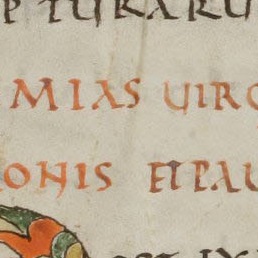 PTURARU
MIAS UIRO
ONIS ETPAU